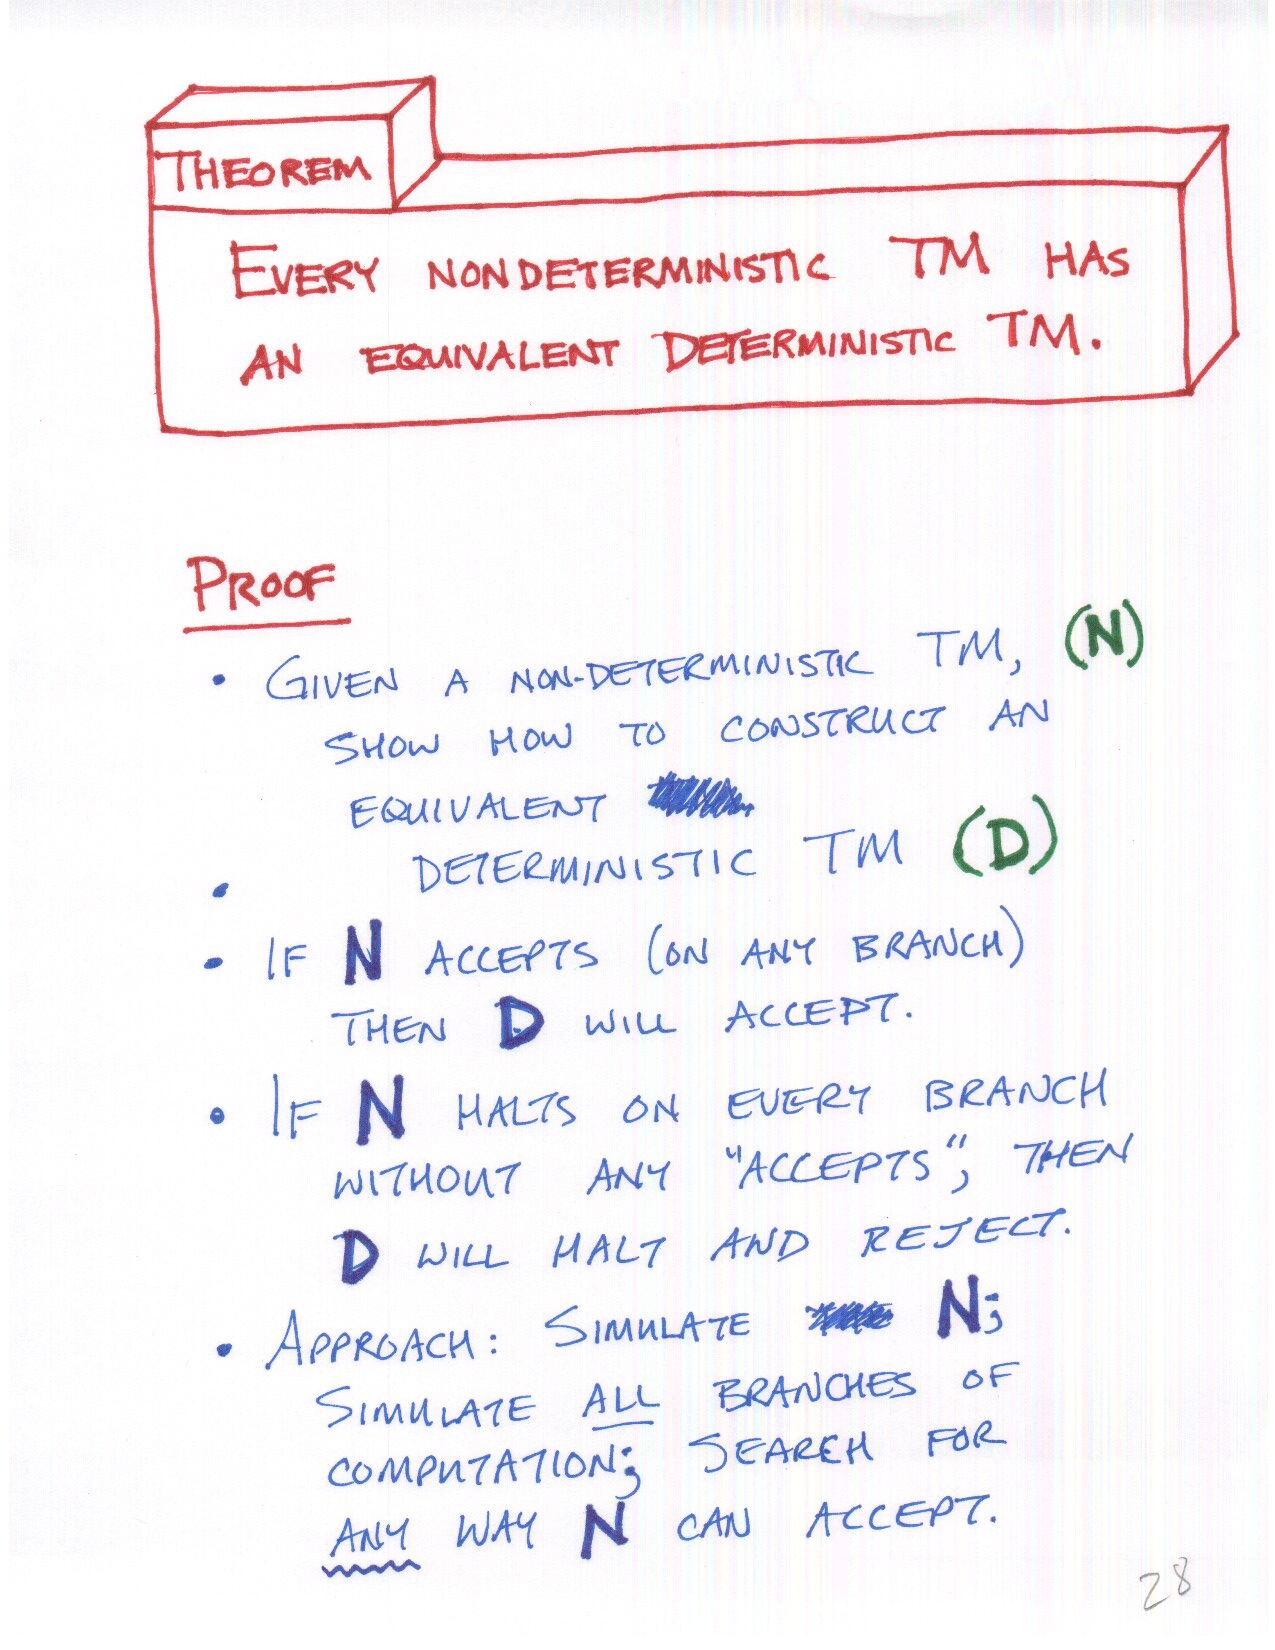 THEOREM
EVERY NONDETERMINISTIC TM HAS
AN EQUIVALENT DETERMINISTIC TM.
PROOF
• GIVEN A NON-DETERMINISTIC TM, (N)
SHOW HOW TO CONSTRUCT AN
EQUIVALENT
DETERMINISTIC TM (D)
•
• IF N ACCEPTS (ON ANY BRANCH)
THEN D WILL ACCEPT.
• IF N HALTS ON EVERY BRANCH
WITHOUT ANY "ACCEPTS", THEN
D WILL HALT AND REJECT.
• APPROACH: SIMULATE N;
SIMULATE ALL BRANCHES OF
COMPUTATION; SEARCH FOR
ANY WAY N CAN ACCEPT.
28